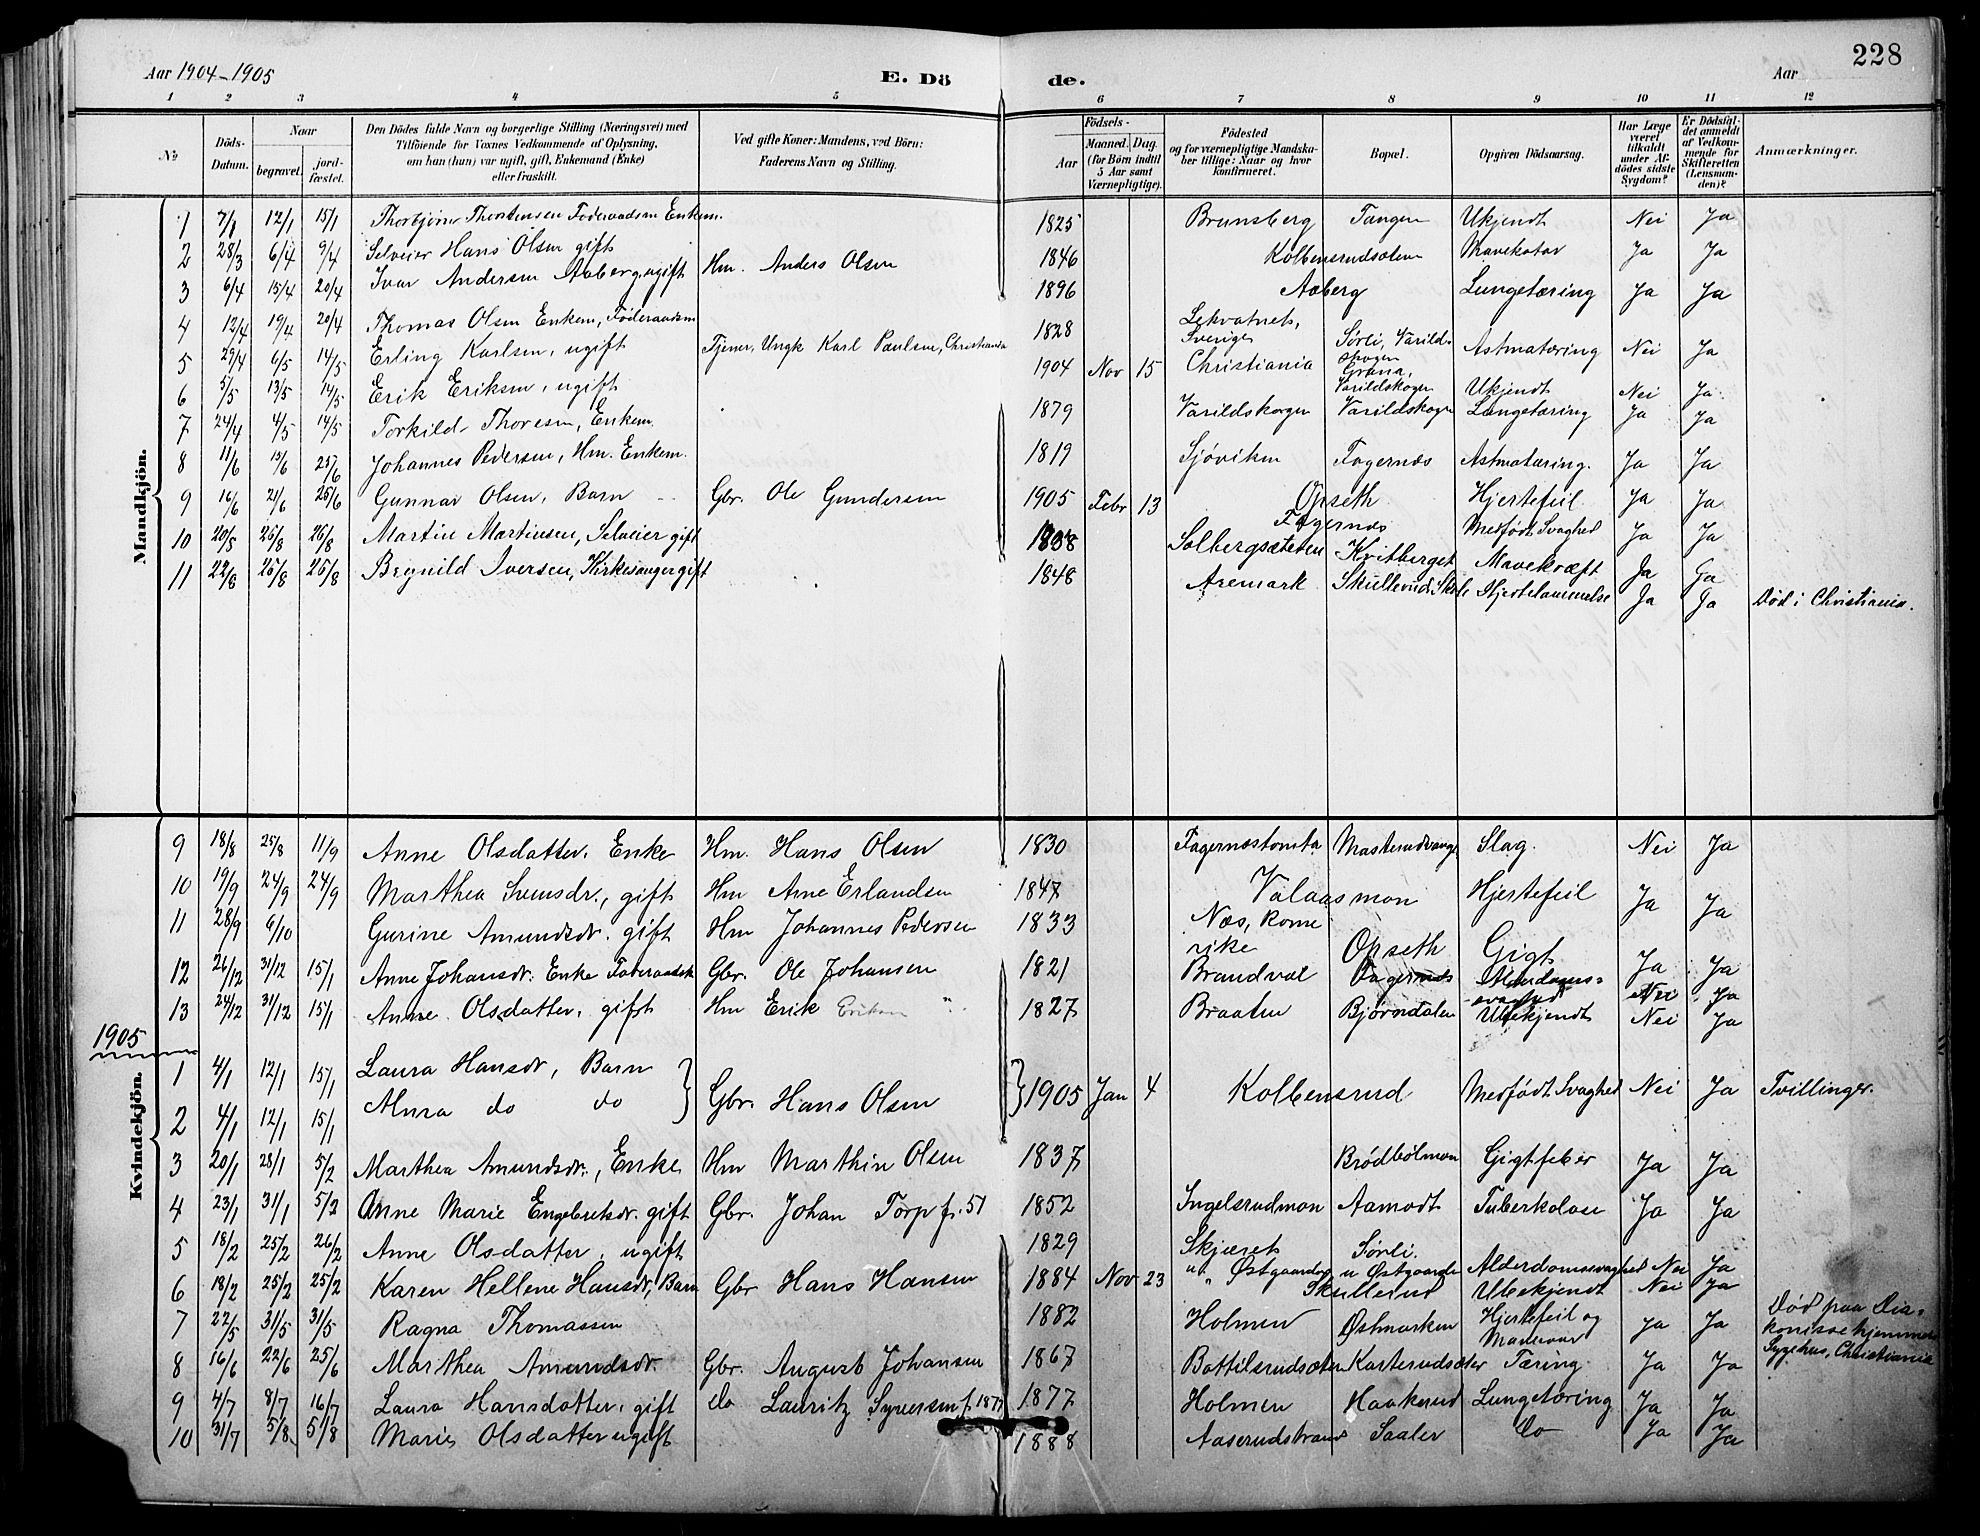 228
Aar 1904-1905 E. Dö de. Aar
1 2 3 4 5 6 7 8 9 10 11 12
№ Döds-Datum. Naar begravet. jordfæstet. Den Dödes fulde Navn og borgerlige Stilling (Næringsvei) med Tilföiende for Voxnes Vedkommende af Oplysning, om han (hun) var ugift, gift, Enkemand (Enke) eller fraskilt. Ved gifte Koner: Mandens, ved Börn: Faderens Navn og Stilling. Födsels- Aar Maaned. Dag. (for Börn indtil 5 Aar samt Værnepligtige). Födested og for værnepligtige Mandskaber tillige: Naar og hvor konfirmeret. Bopæl. Opgiven Dödsaarsag. Har Læge været tilkaldt under Afdödes sidste Sygdom? Er Dödsfaldet anmeldt af Vedkommende for Skifteretten (Lensmanden)? Anmærkninger.
Mandkjön.
1 7/1 12/1 15/1 Thorbjørn Thorstensen Føderaadsm Enkem. 1825 Brunsberg Tangen Ukjendt Nei Ja
2 28/3 6/4 9/4 Selveier Hans Olsen gift 1846 Kolbensrudsæteren Mavekatar Ja Ja
3 6/4 15/4 20/4 Ivar Andersen Aaberg, ugift Hm. Anders Olsen 1896 Aaberg Lungetæring Ja Ja
4 12/4 19/4 20/4 Thomas Olsen Enkem, Føderaadsm 1828 Lekvatnets, Sverige Sørli, Varildskogen Astmatæring Nei Ja
5 29/4 6/5 14/5 Erling Karlsen, ugift Tjener, Ungk Karl Paulsen, Christiania 1904 Nov 15 Christiania Grana, Varildskogen Ukjendt Nei Ja
6 5/5 13/5 14/5 Erik Eriksen, ugift 1879 Varildskogen Varildskogen Lungetæring Ja Ja
7 24/4 4/5 14/5 Torkild Thoresen, Enkem. 1819 Sjøviken Fagernæs Astmatæring. Ja Ja
8 11/6 15/6 25/6 Johannes Pedersen, Hm. Enkem. Opseth Hjertefeil Ja Ja
9 16/6 21/6 25/6 Gunnar Olsen, Barn Gbr. Ole Gundersen 1905 Febr 13 Fagernæs Medfødt Svaghed Ja Ja
10 20/8 26/8 26/8 Martin Martinsen, Selveier gift Solbergsæteren Kvitberget Mavekræft Ja Ja
11 22/8 26/8 26/8 Brynild Iversen, Kirkesanger gift 1848 Aremark Skullerud Skole Hjertelammelse Ja Ja Død i Christiania.
9 18/8 25/8 11/9 Anne Olsdatter, Enke Hm. Hans Olsen 1830 Fagernæstomta Masterudvangen Slag. Nei Ja
10 19/9 24/9 24/9 Marthea Svensdr., gift Hm Arne Erlandsen 1847 Valaasmon Hjertefeil Ja Ja
11 28/9 6/10 Gurine Amundsdr. gift Hm Johannes Pedersen 1833 Næs, Romerike Opseth Gigt Ja Ja
12 26/12 31/12 15/1 Anne Johansdr. Enke Føderaadsk Gbr. Ole Johansen 1821 Brandval Fagernæs Alderdomssvaghed Nei Ja
13 24/12 31/12 15/1 Anne Olsdatter, gift Hm Erik Eriksen 1827 Braaten Bjørndalen Ubekjendt Nei Ja
1905
Kvindekjön.
1 4/1 12/1 15/1 Laura Hansdr, Barn
2 4/1 12/1 15/1 Alma do do Gbr. Hans Olsen 1905 Jan 4 Kolbensrud Medfødt Svaghed Nei Ja Tvillinger.
3 20/1 28/1 5/2 Marthea Amundsdr., Enke Hm Marthin Olsen 1837 Brødbølmon Gigtfeber Ja Ja
4 23/1 31/1 5/2 Anne Marie Engebretsdr. gift Gbr. Johan Torp f. 51 1852 Ingelsrudmon Aamodt Tuberkolose Ja Ja
5 18/2 25/2 26/2 Anne Olsdatter, ugift 1829 Skjæret Sørli. Alderdomssvaghed Nei Ja
6 18/2 25/2 25/2 Karen Hellene Hansdr, Barn Gbr Hans Hansen 1884 Nov 23 u Østgaarden u Østgaarden Skullerud Ubekjendt Nei Ja
7 22/5 31/5 31/5 Ragna Thomassen 1882 Holmen Østmarken Hjertefeil og Ja Ja Død paa Diakonissehjemmets Sygehus, Christiania
8 16/6 22/6 25/6 Marthea Amundsdr. Gbr. August Johansen 1867 Bottilsrudsæter Kasterudsæter Tæring. Ja Ja
9 4/7 8/7 16/7 Laura Hansdatter, gift do Lauritz Syversen f. 1877 1877 Holmen Haakerud Lungetæring Ja Ja
10 31/7 5/8 5/8 Marie Olsdatter ugift 1888 Aaserudstrand Saaler Do Ja Ja